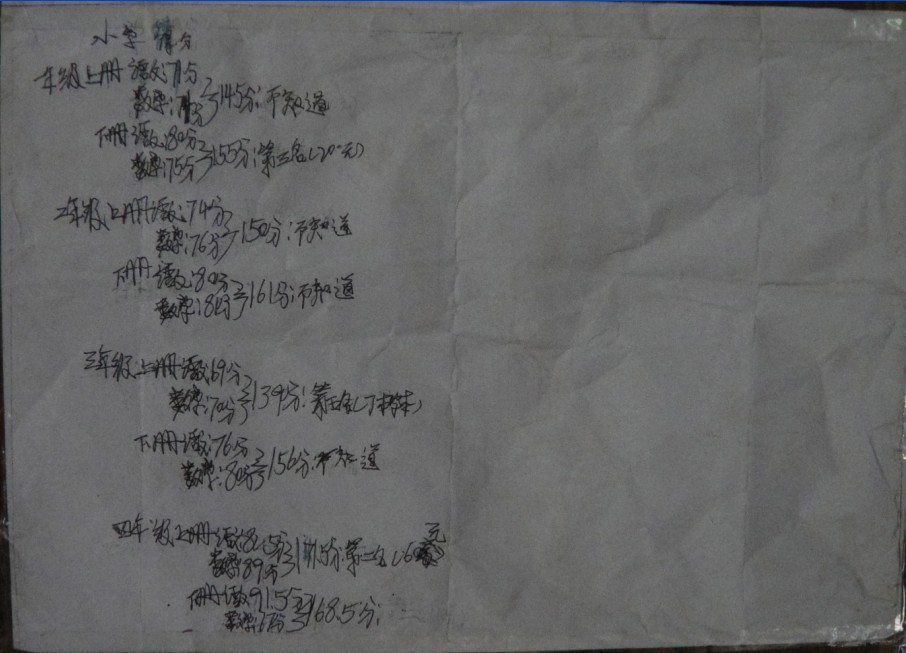 小学 得分
一年级上册 语文:71分
数学:7分 =145分:不知道
下册:语文:80分
数学:75分 =155分:第三名(20元)
2年级上册语文:74分
数学:76分 =150分:不知道
下册 语文:80分
数学:81分 =161分:不知道
三年级上册语文:69分
数学:70分 =139分:第五名(7本)
下册语文:76分
数学:80分 =156分:不知道
四年级上册语文:82.5分
数学:89分 =171.5分:第二名(6元
下册语文:91.5分
数学:77分 =168.5分: